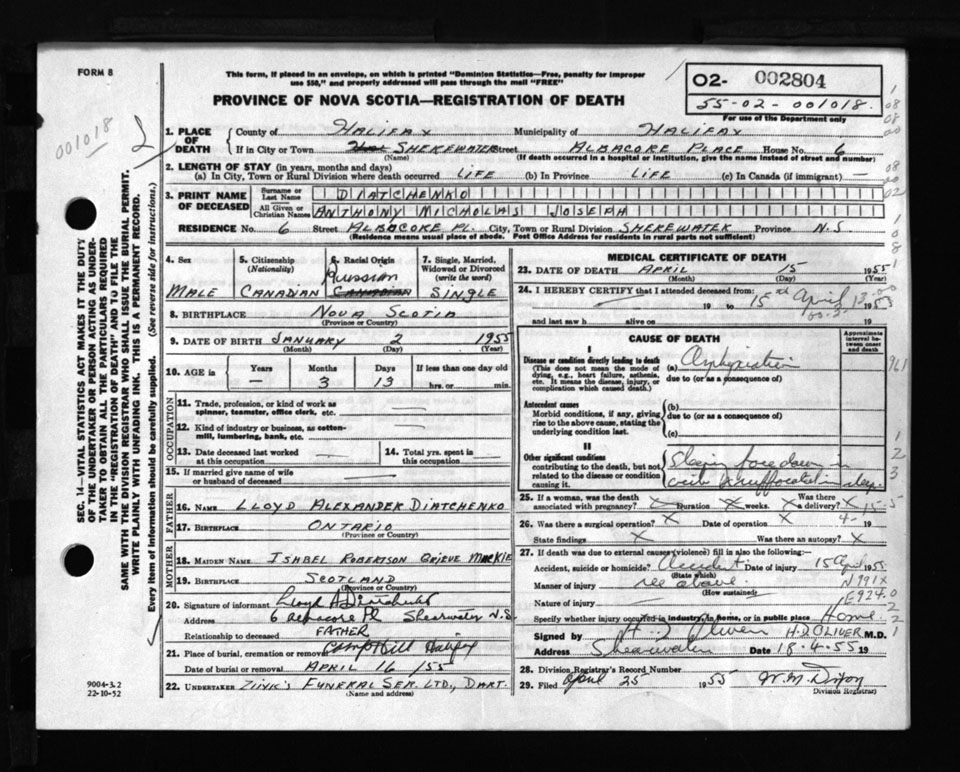 FORM 8
This form, if placed in an envelope, on which is printed "Dominion Statistics—Free, penalty for improper
use $50," and properly addressed will pass through the mail "FREE"
PROVINCE OF NOVA SCOTIA—REGISTRATION OF DEATH
O2- 002804
55-02-001018.
For use of the Department only
001018
2
1. PLACE OF DEATH
County of HALIFAX Municipality of HALIFAX
If in City or Town SHEREWATER Street ALBACORE PLACE House No. 6
(Name) (If death occurred in a hospital or institution, give the name instead of street and number)
2. LENGTH OF STAY (in years, months and days)
(a) In City, Town or Rural Division where death occurred LIFE (b) In Province LIFE (c) In Canada (if immigrant) —
3. PRINT NAME OF DECEASED
Surname or Last Name DIATCHENKO
All Given or Christian Names ANTHONY MICHOLAS JOSEPH
RESIDENCE No. 6 Street ALBACORE PL. City, Town or Rural Division SHEREWATER Province N.S.
(Residence means usual place of abode. Post Office Address for residents in rural parts not sufficient)
4. Sex MALE
5. Citizenship (Nationality) CANADIAN
6. Racial Origin Russian CANADIAN
7. Single, Married, Widowed or Divorced (write the word) SINGLE
8. BIRTHPLACE NOVA SCOTIA
(Province or Country)
9. DATE OF BIRTH JANUARY 2 1955
(Month) (Day) (Year)
10. AGE is Years — Months 3 Days 13 If less than one day old hrs. or min.
OCCUPATION
11. Trade, profession, or kind of work as spinner, teamster, office clerk, etc. —
12. Kind of industry or business, as cotton-mill, lumbering, bank, etc. —
13. Date deceased last worked at this occupation —
14. Total yrs. spent in this occupation —
15. If married give name of wife or husband of deceased —
FATHER
16. NAME LLOYD ALEXANDER DIATCHENKO
17. BIRTHPLACE ONTARIO
(Province or Country)
MOTHER
18. MAIDEN NAME ISHBEL ROBERTSON GRIEVE MACKIE
19. BIRTHPLACE SCOTLAND
(Province or Country)
20. Signature of informant Lloyd A Diatchenko
Address 6 albacore Pl Shearwater N.S.
Relationship to deceased FATHER
21. Place of burial, cremation or removal Camp Hill Halifax
Date of burial or removal APRIL 16 /55
22. UNDERTAKER ZIINK'S FUNERAL SER. LTD., DART.
(Name and address)
9004-3.2
22-10-52
SEC. 14—VITAL STATISTICS ACT MAKES IT THE DUTY
OF THE UNDERTAKER OR PERSON ACTING AS UNDER-
TAKER TO OBTAIN ALL THE PARTICULARS REQUIRED
IN THE "REGISTRATION OF DEATH" AND TO FILE THE
SAME WITH THE DIVISION REGISTRAR WHO SHALL ISSUE THE BURIAL PERMIT.
WRITE PLAINLY WITH UNFADING INK. THIS IS A PERMANENT RECORD.
Every item of information should be carefully supplied. (See reverse side for instructions.)
MEDICAL CERTIFICATE OF DEATH
23. DATE OF DEATH APRIL 15 1955
(Month) (Day) (Year)
24. I HEREBY CERTIFY that I attended deceased from:
— 19 to 15th April 1955
and last saw h alive on 19
CAUSE OF DEATH
Approximate interval between onset and death
I
Disease or condition directly leading to death
(This does not mean the mode of dying, e.g., heart failure, asthenia, etc. It means the disease, injury, or complication which caused death.)
(a) Asphyxiation
due to (or as a consequence of)
Antecedent causes
Morbid conditions, if any, giving rise to the above cause, stating the underlying condition last.
(b)
due to (or as a consequence of)
(c)
II
Other significant conditions contributing to the death, but not related to the disease or condition causing it.
Sleeping face down in
suffocation
25. If a woman, was the death associated with pregnancy? X Duration X weeks. Was there a delivery? X
26. Was there a surgical operation? X Date of operation X 19
State findings X Was there an autopsy? X
27. If death was due to external causes (violence) fill in also the following:—
Accident, suicide or homicide? Accident Date of injury 15 April 1955
(State which)
Manner of injury see above N991X
(How sustained)
Nature of injury E924.0
Specify whether injury occurred in industry, in home, or in public place Home
Signed by H D Oliver H.D. OLIVER M.D.
Address Shearwater Date 18.4.55 19
28. Division Registrar's Record Number
29. Filed April 25 1955 W. M. Dixon
Division Registrar